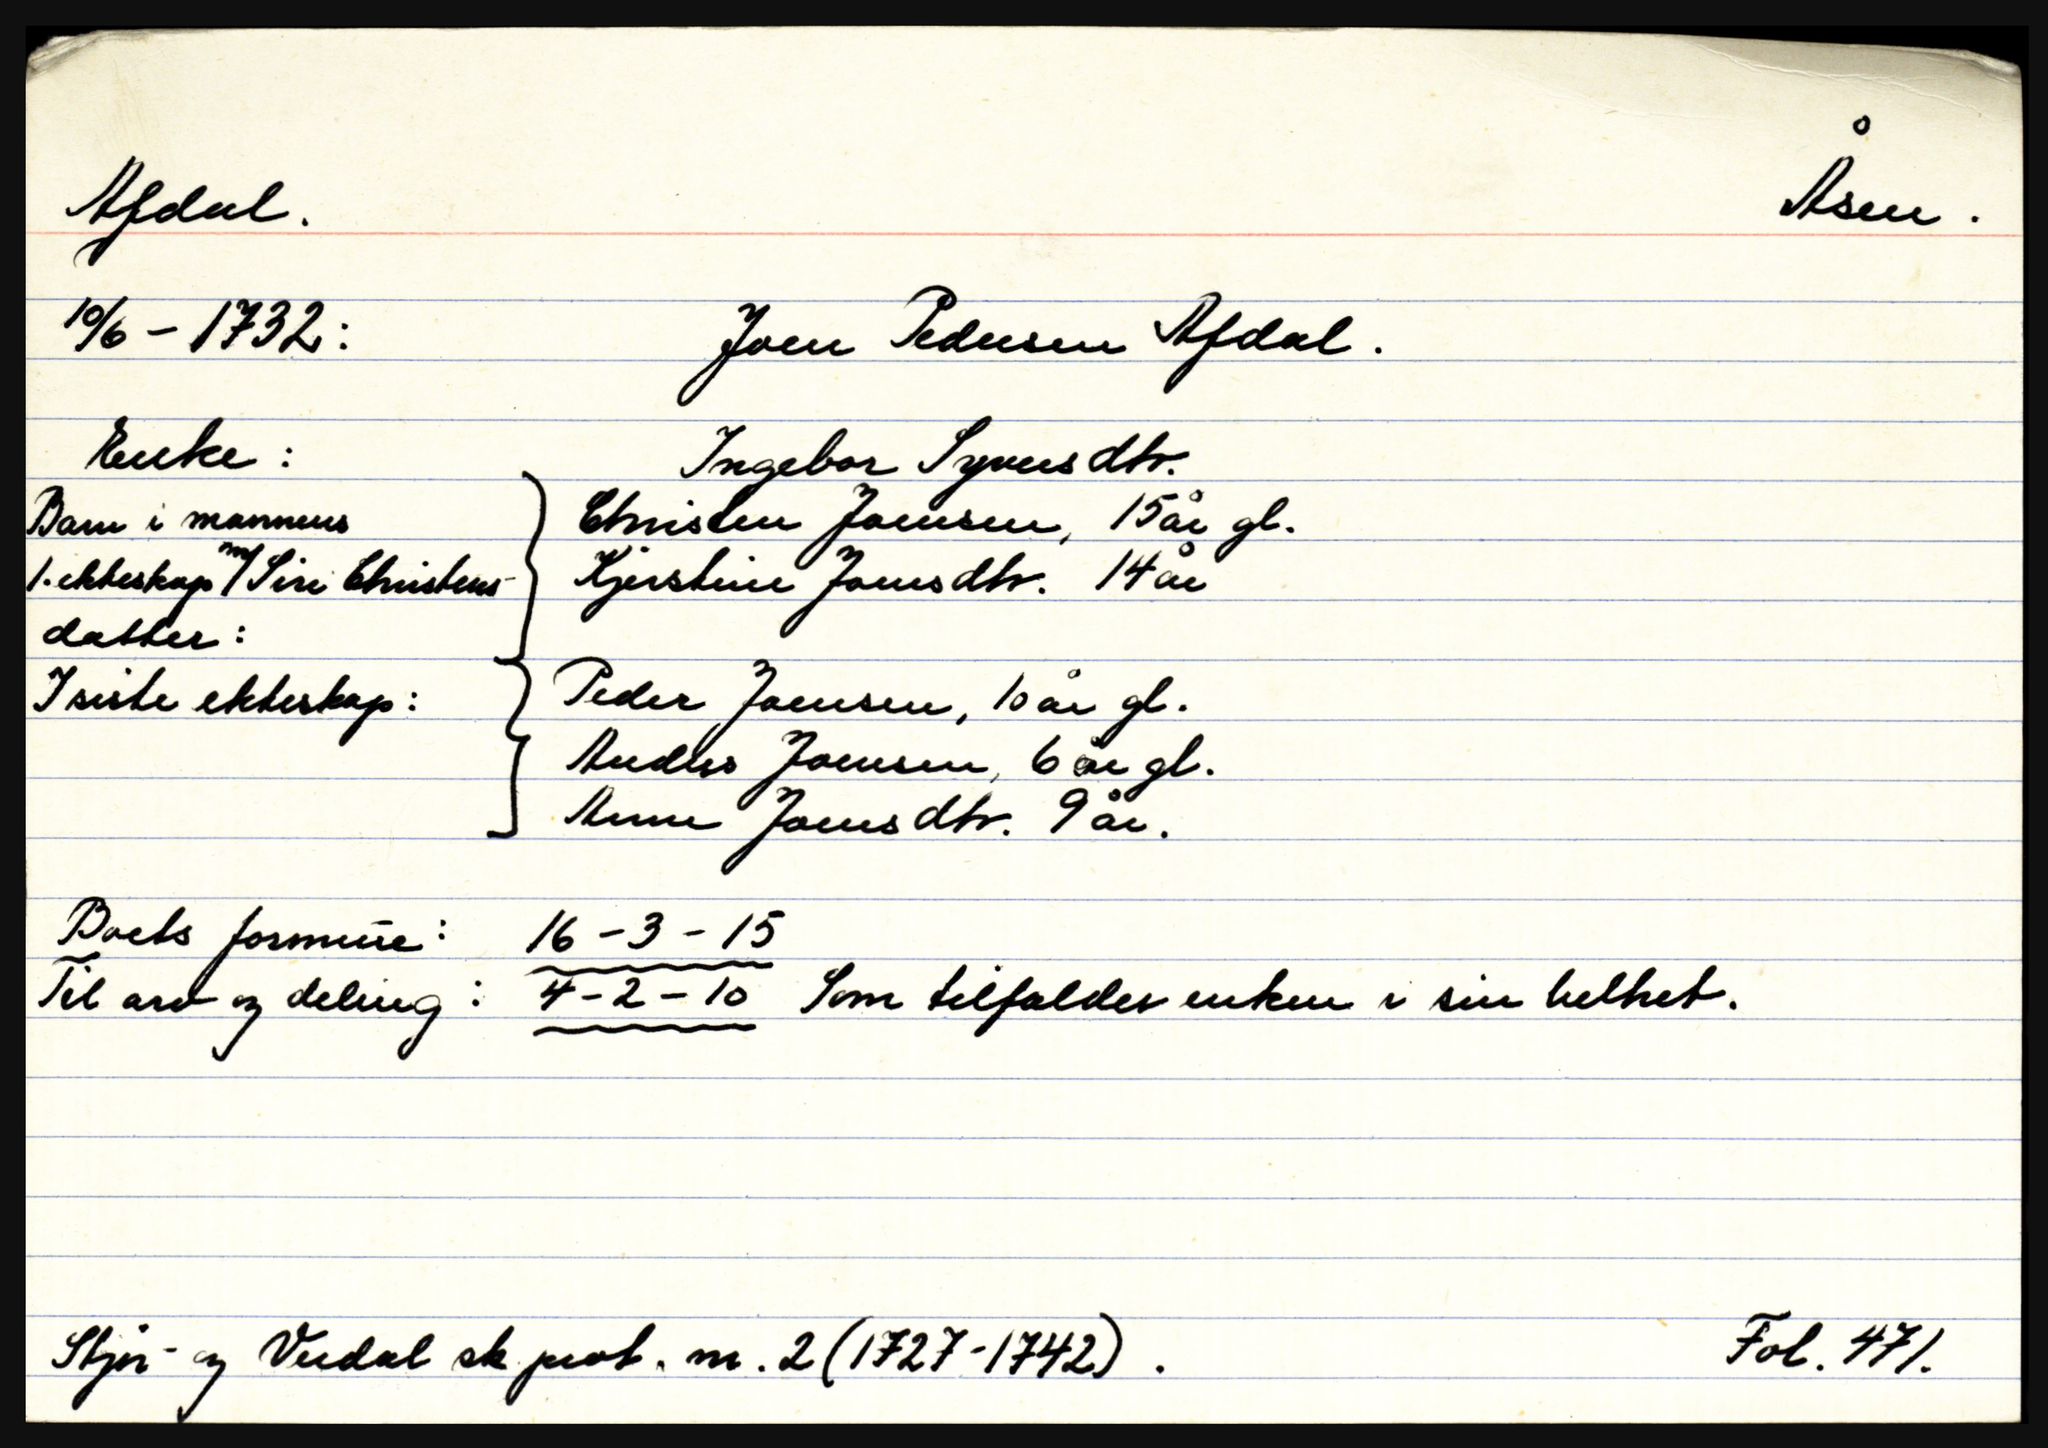 Afdal. Åsen.
10/6 - 1732: Joen Pedersen Afdal.
Enke: Ingebor Syversdtr.
Barn i mannens Christen Joensen, 15 år gl.
1. ekteskap m/ Siri Christens- Kjerstine Joensdtr. 14 år
datter:
I siste ekteskap: Peder Joensen, 10 år gl.
Anders Joensen, 6 år gl.
Anne Joensdtr. 9 år.
Boets formue: 16 - 3 - 15
Til arv og deling: 4 - 2 - 10 Som tilfaldes enken i sin helhet.
Stjør- og Verdal sk.prot. nr. 2 (1727-1742). Fol. 471.